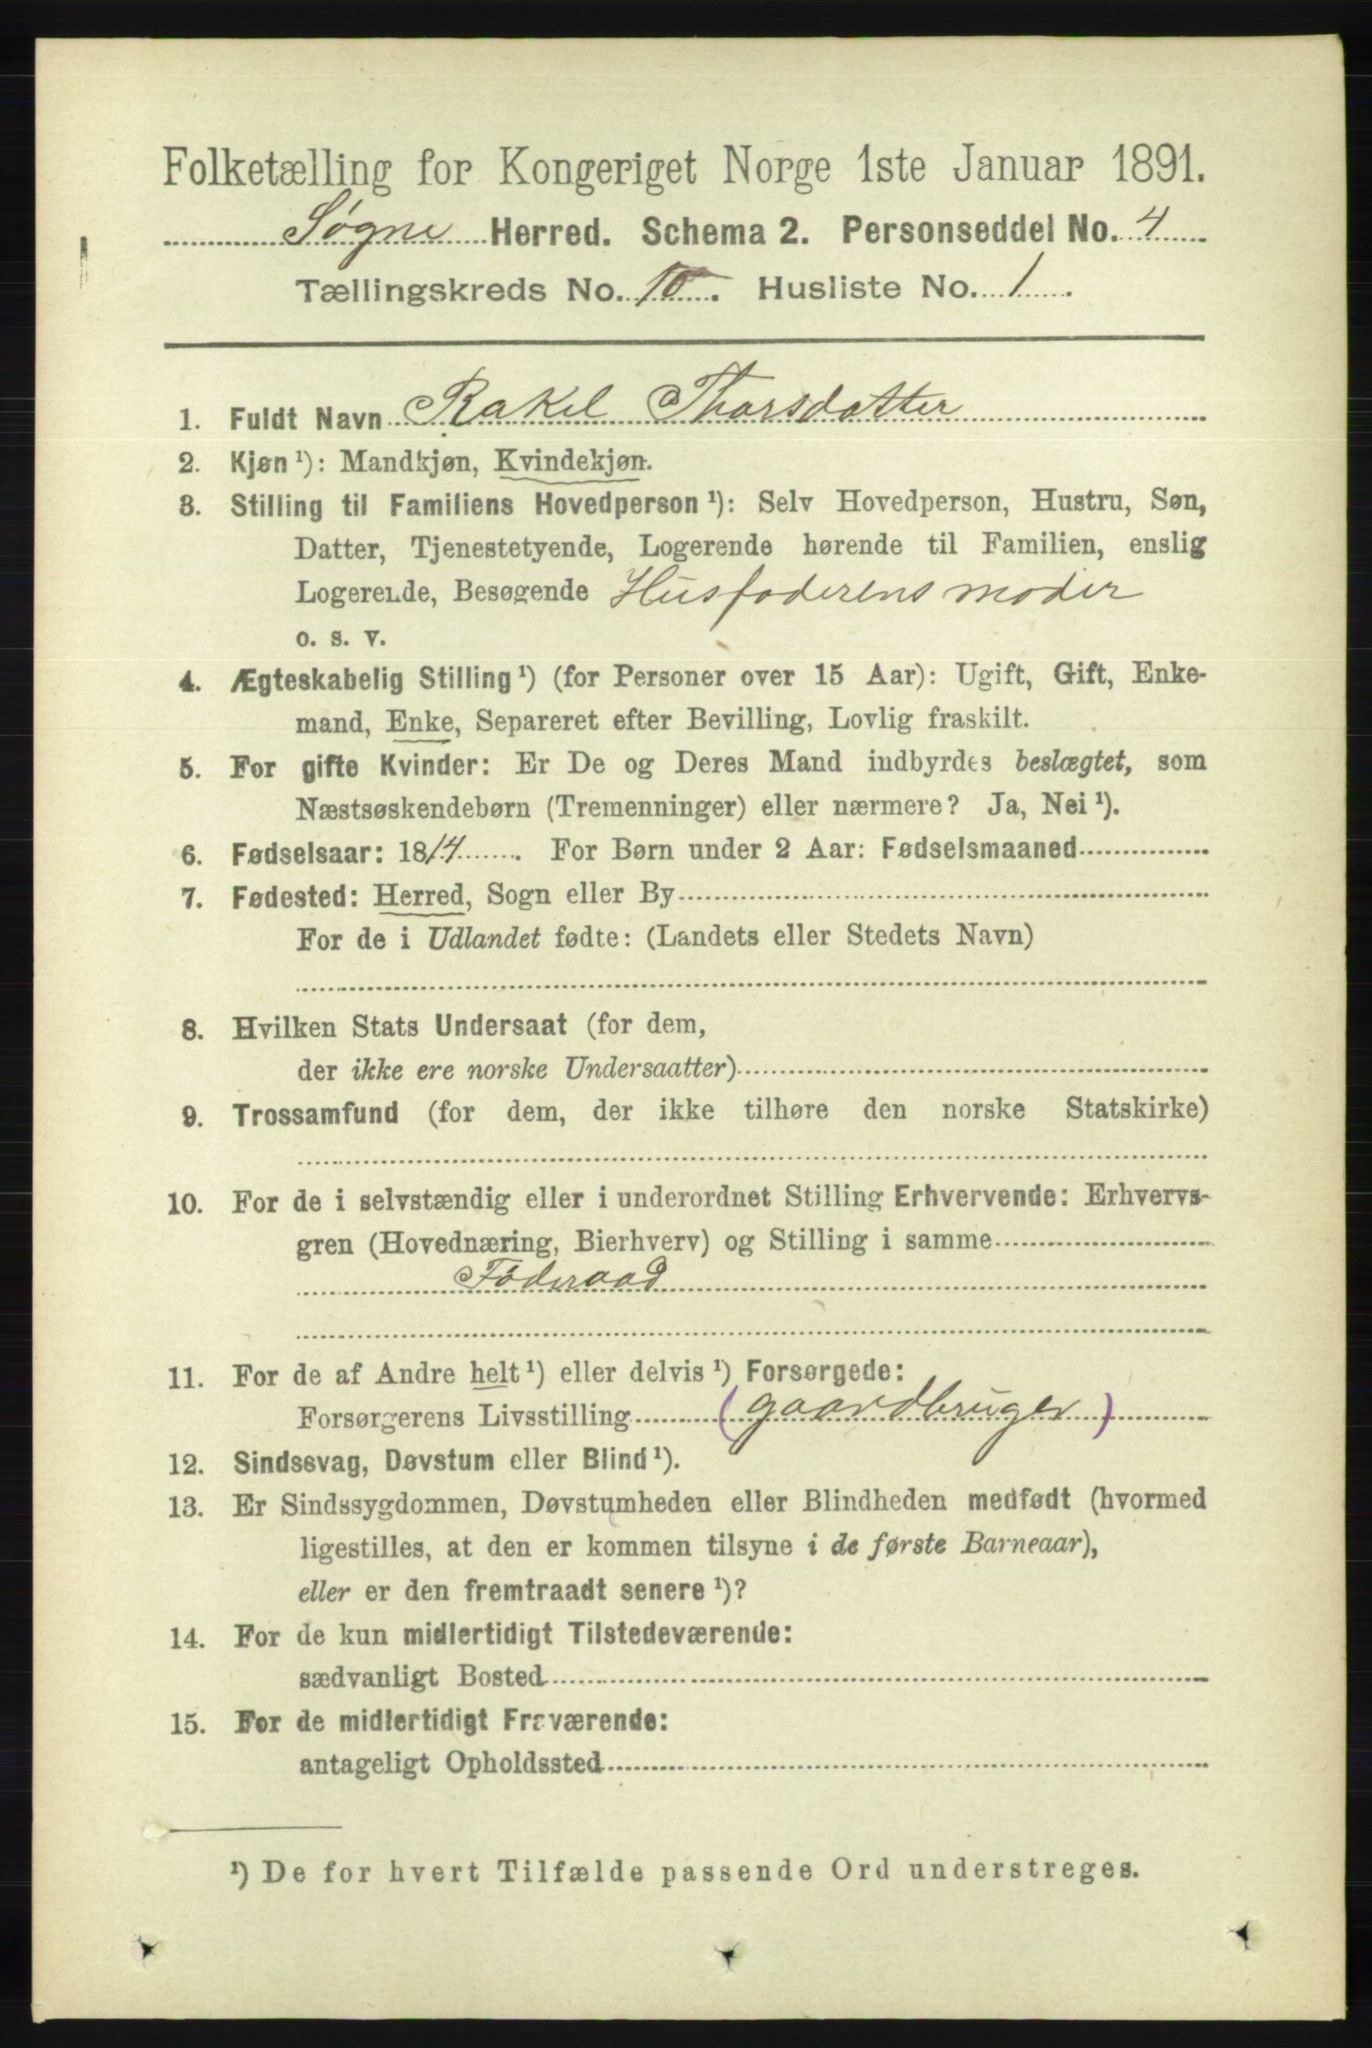 Folketælling for Kongeriget Norge 1ste Januar 1891.
Søgne Herred. Schema 2. Personseddel No. 4
Tællingskreds No. 10. Husliste No. 1.
1. Fuldt Navn Rakel Thorsdatter
2. Kjøn ¹): Mandkjøn, Kvindekjøn.
3. Stilling til Familiens Hovedperson ¹): Selv Hovedperson, Hustru, Søn,
Datter, Tjenestetyende, Logerende hørende til Familien, enslig
Logerende, Besøgende Husfaderens moder
o. s. v.
4. Ægteskabelig Stilling ¹) (for Personer over 15 Aar): Ugift, Gift, Enke-
mand, Enke, Separeret efter Bevilling, Lovlig fraskilt.
5. For gifte Kvinder: Er De og Deres Mand indbyrdes beslægtet, som
Næstsøskendebørn (Tremenninger) eller nærmere? Ja, Nei ¹).
6. Fødselsaar: 1814. For Børn under 2 Aar: Fødselsmaaned
7. Fødested: Herred, Sogn eller By
For de i Udlandet fødte: (Landets eller Stedets Navn)
8. Hvilken Stats Undersaat (for dem,
der ikke ere norske Undersaatter)
9. Trossamfund (for dem, der ikke tilhøre den norske Statskirke)
10. For de i selvstændig eller i underordnet Stilling Erhvervende: Erhvervs-
gren (Hovednæring, Bierhverv) og Stilling i samme
Føderaad
11. For de af Andre helt ¹) eller delvis ¹) Forsørgede:
Forsørgerens Livsstilling (gaardbruger)
12. Sindssvag, Døvstum eller Blind ¹).
13. Er Sindssygdommen, Døvstumheden eller Blindheden medfødt (hvormed
ligestilles, at den er kommen tilsyne i de første Barneaar),
eller er den fremtraadt senere ¹)?
14. For de kun midlertidigt Tilstedeværende:
sædvanligt Bosted
15. For de midlertidigt Fraværende:
antageligt Opholdssted
¹) De for hvert Tilfælde passende Ord understreges.